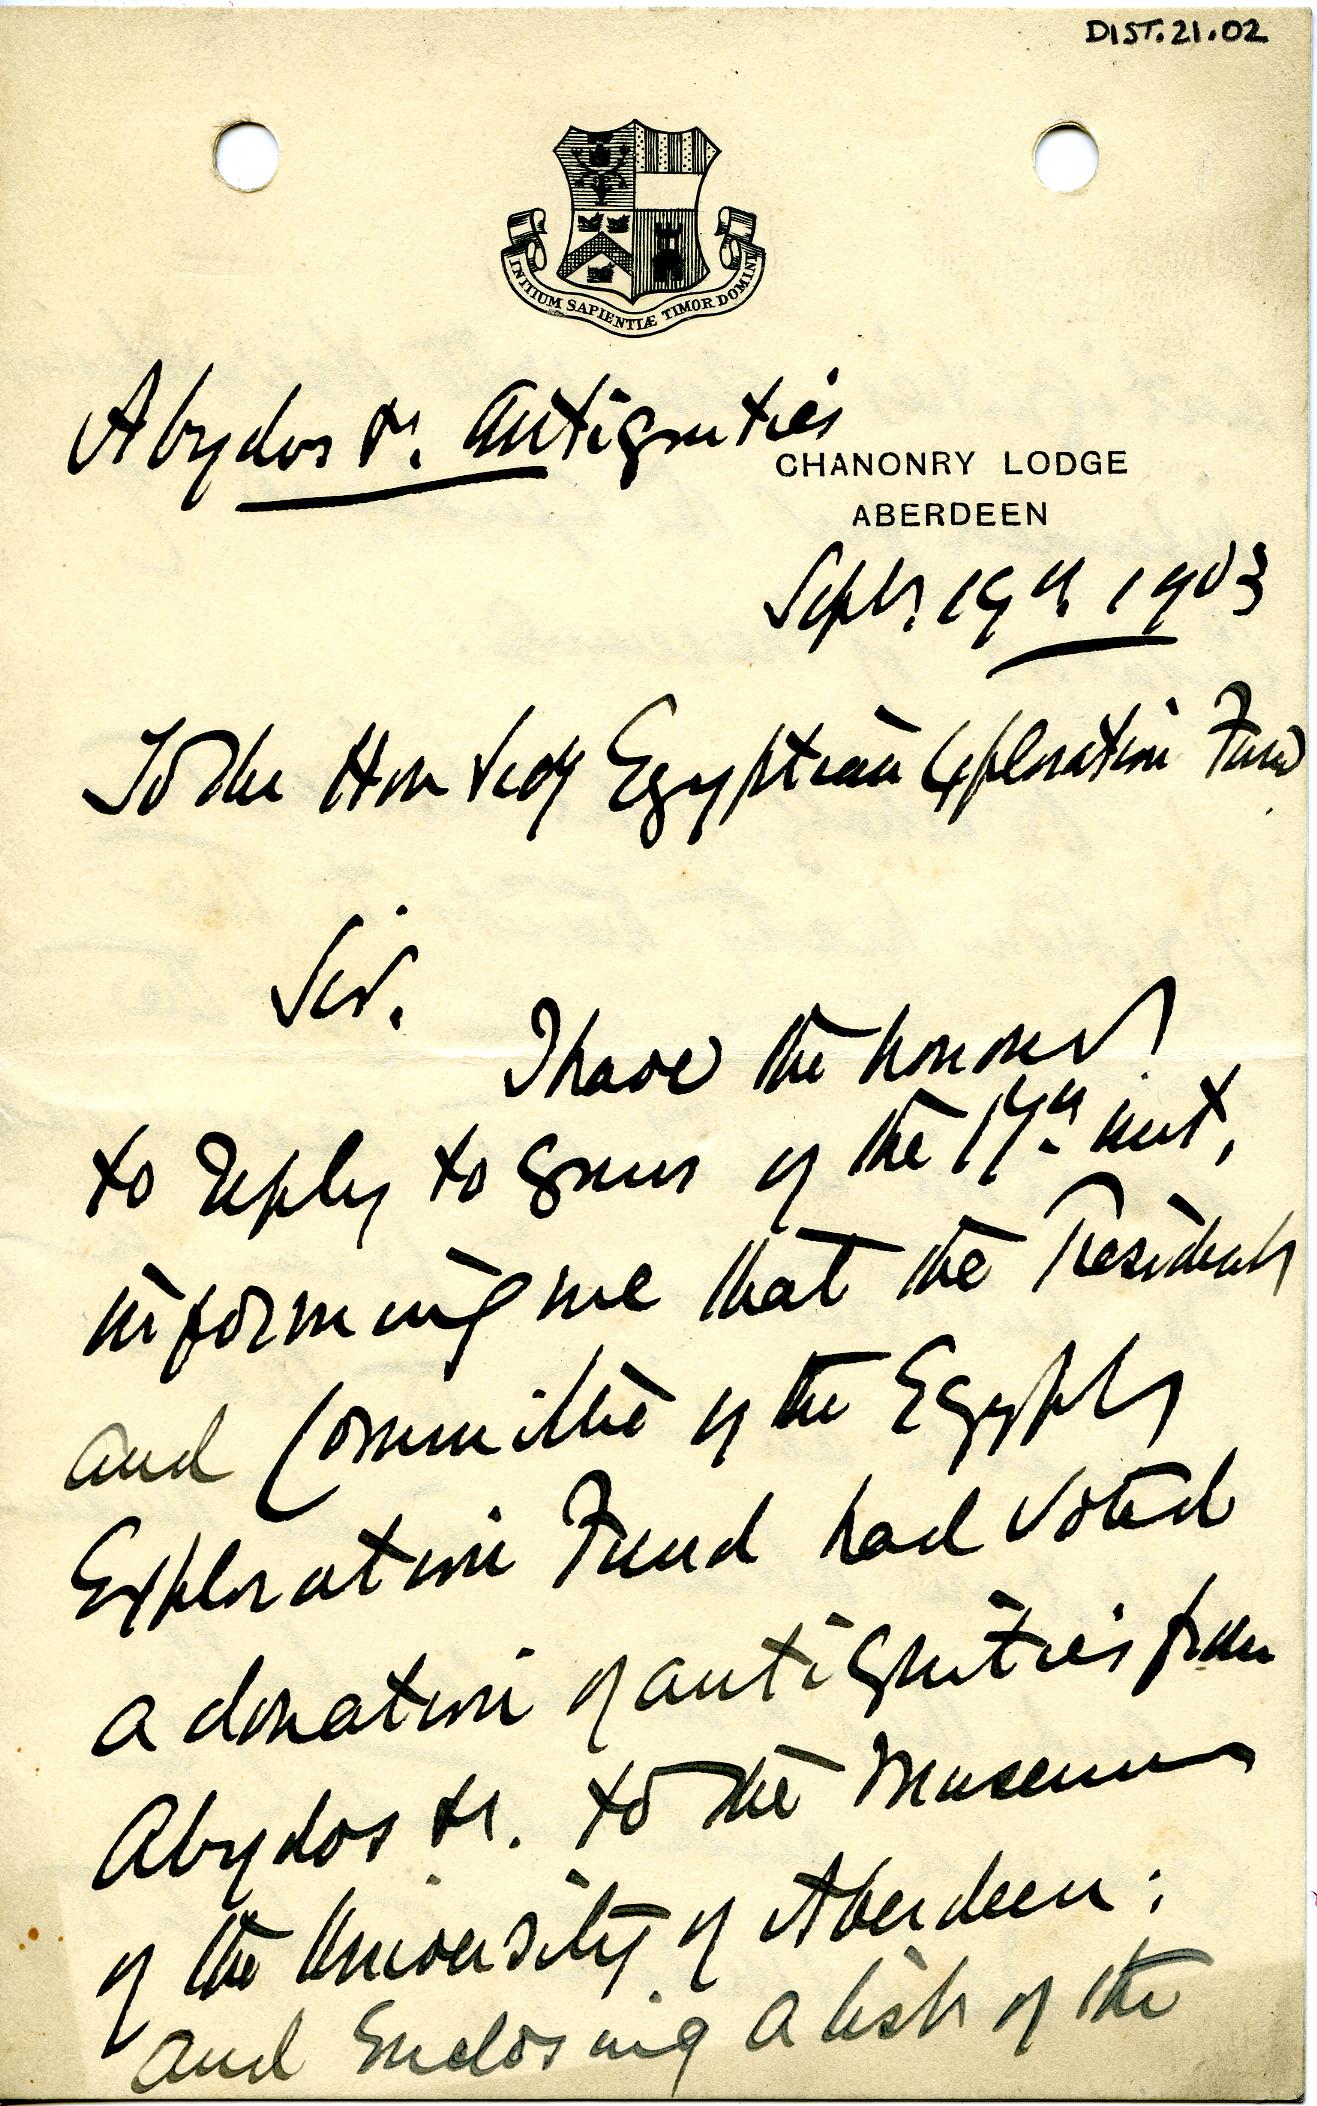 DIST.21.02
INITIUM SAPIENTIÆ TIMOR DOMINI
Abydos &c. Antiquities
CHANONRY LODGE
ABERDEEN
Septr. 19th 1903
To the Hon Secy Egyptian Exploration Fund
Sir.
I have the honour
to reply to yours of the 17th inst,
informing me that the President
and Committee of the Egypt
Exploration Fund had voted
a donation of antiquities from
Abydos &c. to the Museum
of the University of Aberdeen;
and enclosing a list of the